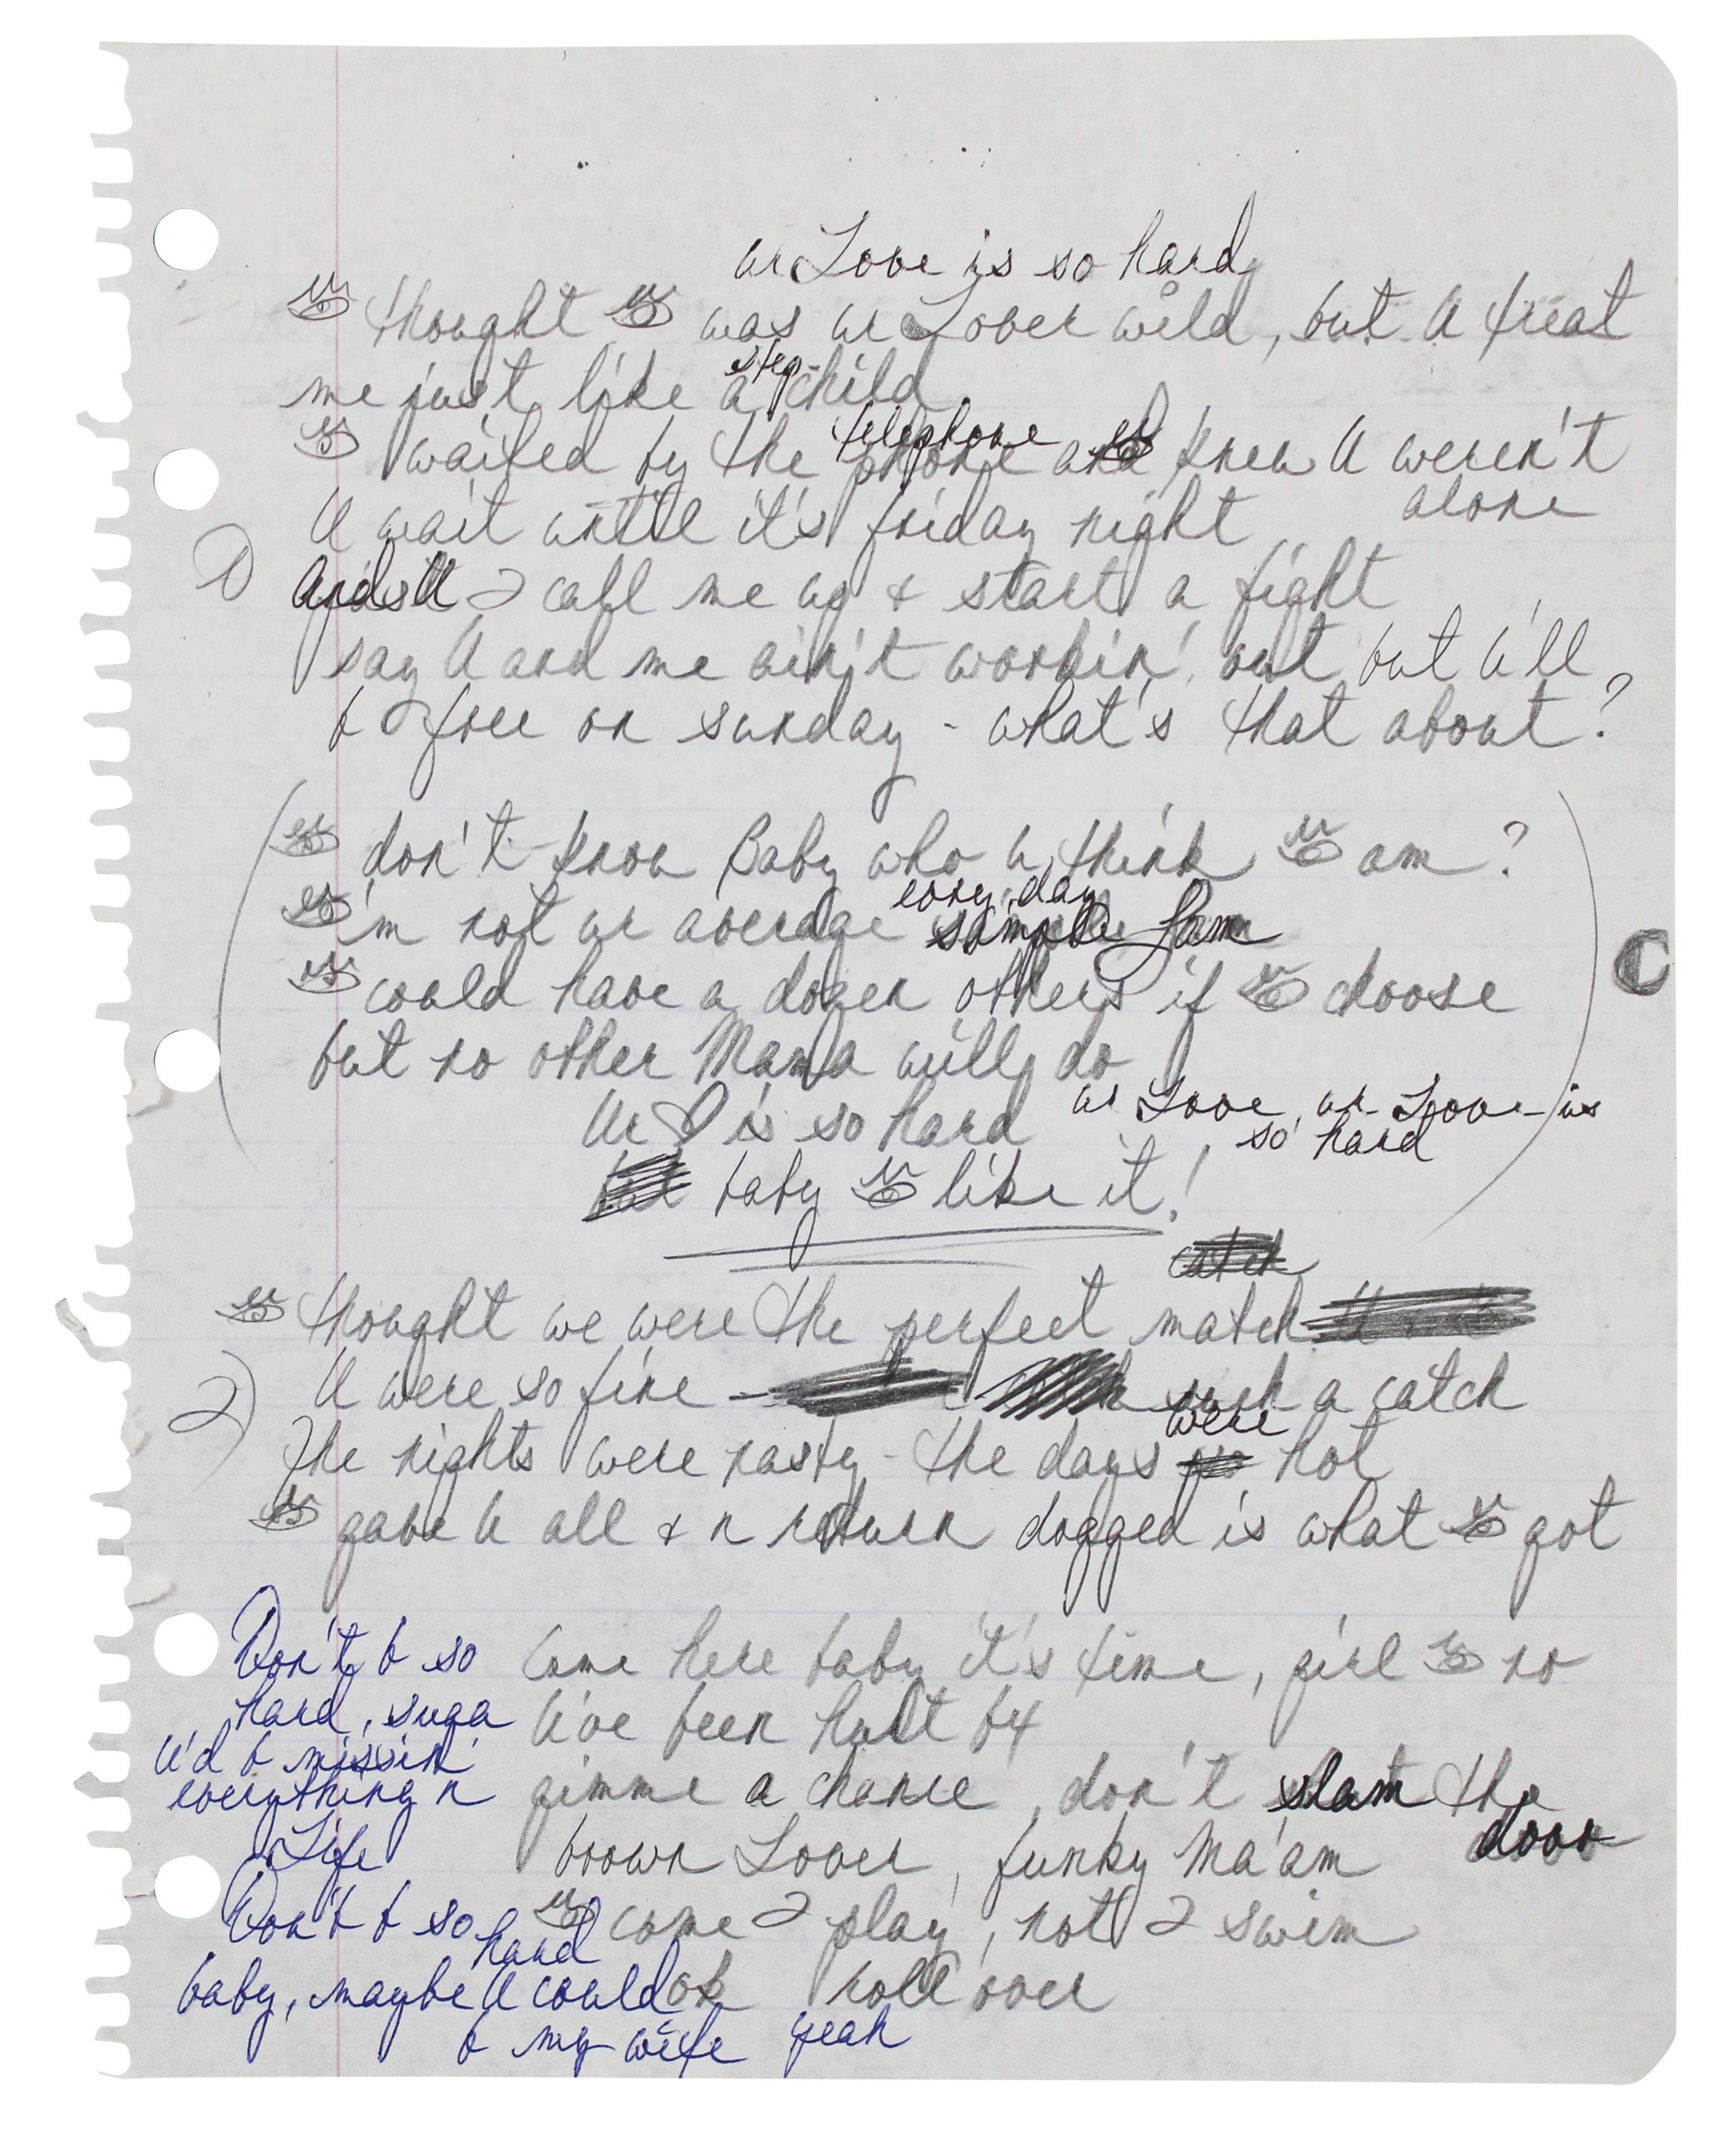 ur Love is so hard
👁 thought 👁 was ur Lover wild, but U treat
me just like a step-child
👁 waited by the telephone and 👁 knew U weren't
alone
U wait until it's friday night
1) And U 2 call me up & start a fight
say U and me ain't workin' out but U'll
b free on sunday - what's that about?
(👁 don't know Baby who u think 👁 am?
👁'm not ur average every day
simple Sam
👁 could have a dozen others if 👁 choose
C
but no other Mama will do
Ur ♡ is so hard ur Love, ur Love is
so hard)
baby 👁 like it!
catch
👁 thought we were the perfect match
2) U were so fine - such a catch
The nights were nasty - the days were hot
👁 gave U all & n return dogged is what 👁 got
Come here baby it's time, girl 👁 no
U've been hurt b4
gimme a chance, don't slam the
door
brown Lover, funky Ma'am
👁 come 2 play, not 2 swim
ok roll over
yeah
Don't b so
hard, suga
U'd b missin'
everything n
Life
Don't b so
hard
baby, maybe U could
b my wife